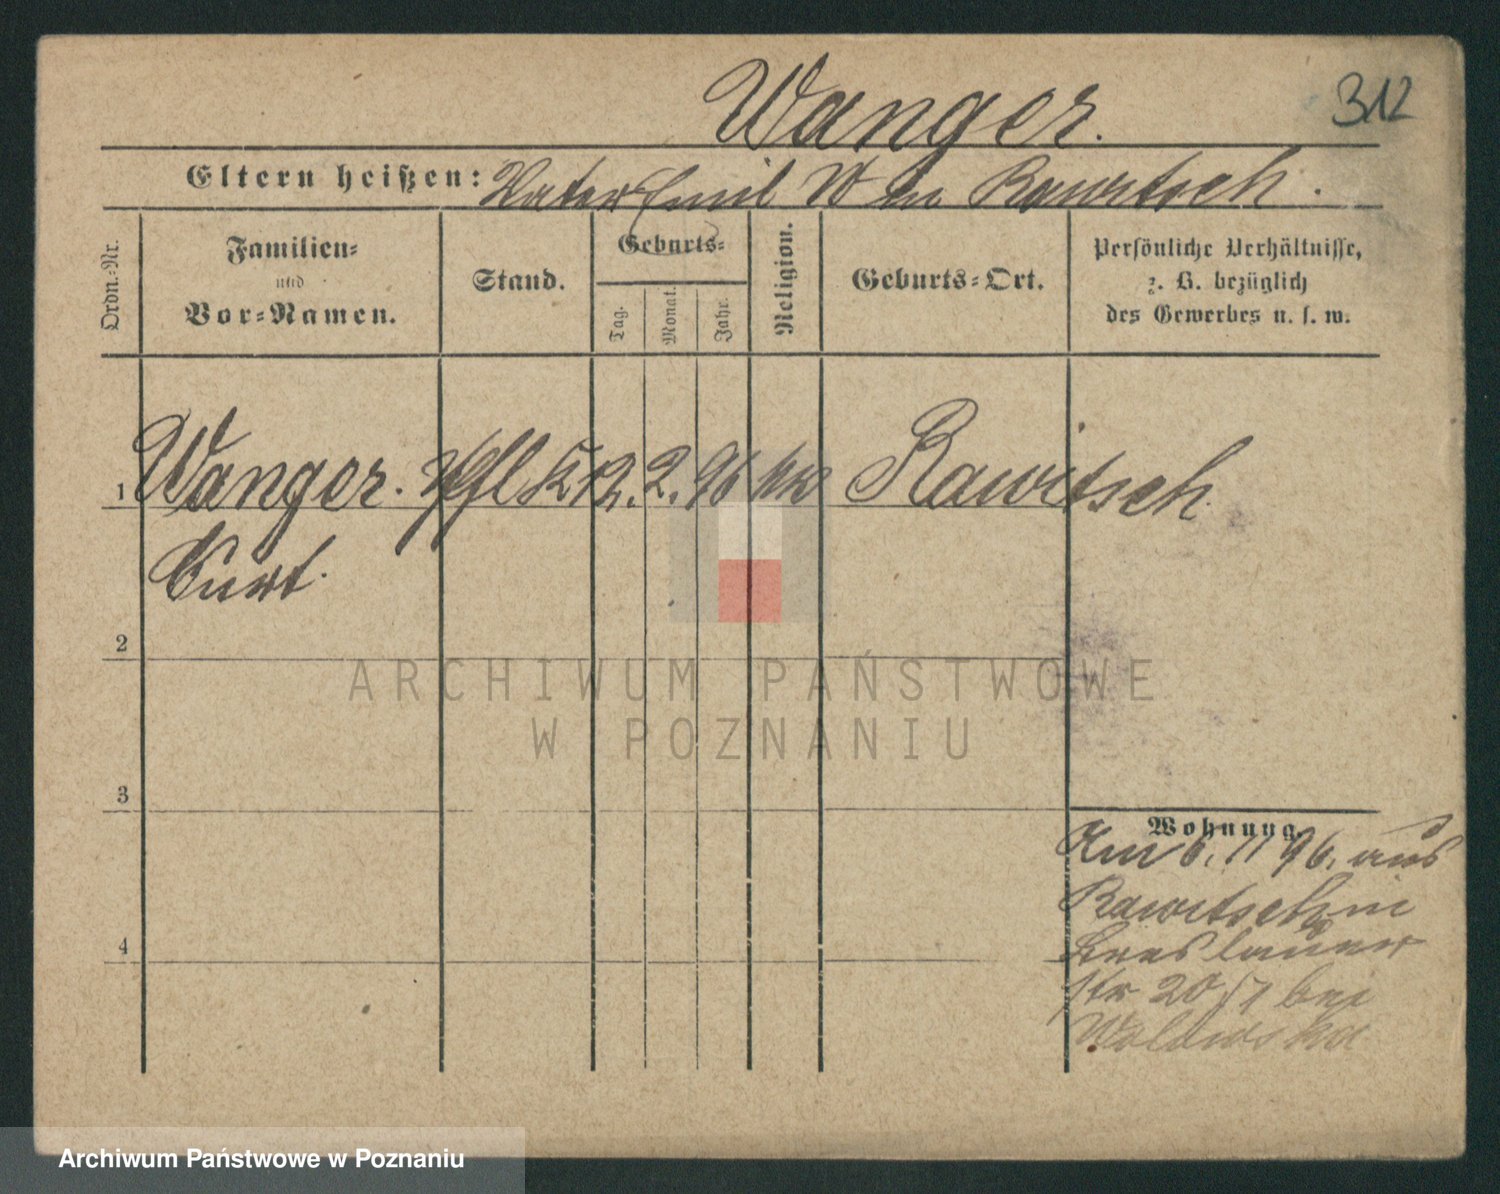 Wanger.
312
Eltern heißen: Vater Emil W in Rawitsch.
Ordn.=Nr.
Familien=
und
Vor=Namen.
Stand.
Geburts=
Tag.
Monat.
Jahr.
Religion.
Geburts=Ort.
Persönliche Verhältnisse,
z. B. bezüglich
des Gewerbes u. s. w.
1 Wanger. 12. 2. 96 Rawitsch.
Kurt.
2
3
4
Wohnung.
Am 6. 11 96. aus
Rawitsch in
Breslauer
str 20 bei
ARCHIWUM PAŃSTWOWE
W POZNANIU
Archiwum Państwowe w Poznaniu